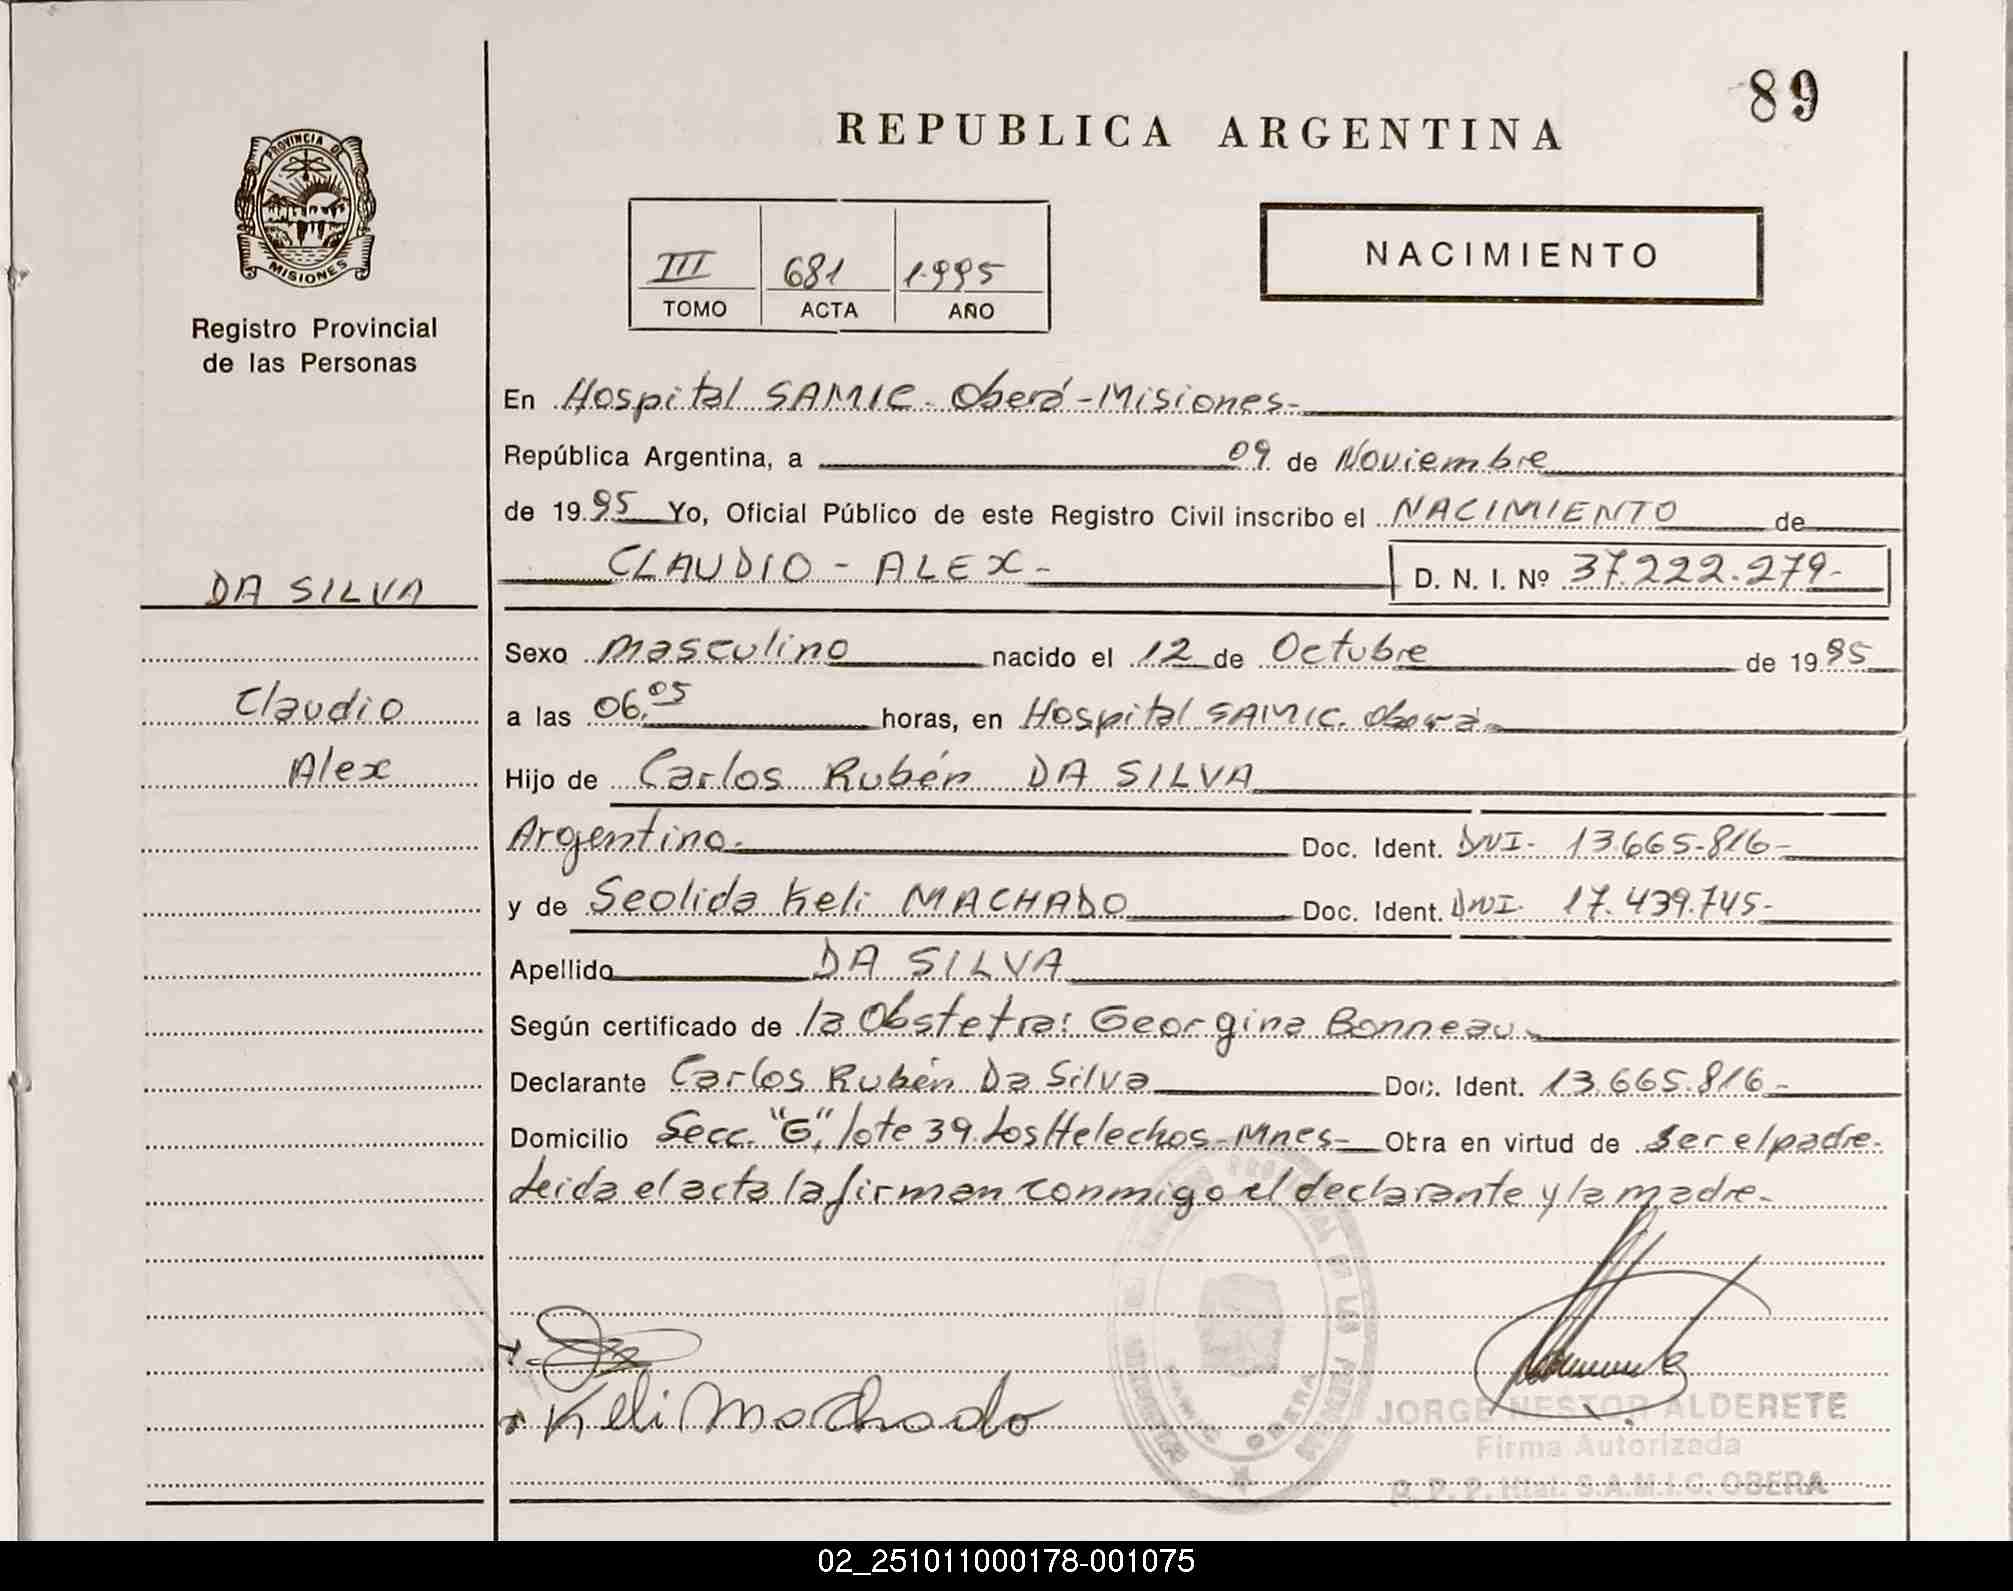 89
REPUBLICA ARGENTINA
PROVINCIA DE
MISIONES
Registro Provincial
de las Personas
III 681 1995
TOMO ACTA AÑO
NACIMIENTO
En Hospital SAMIC - Oberá - Misiones-
República Argentina, a 09 de Noviembre
de 1995 Yo, Oficial Público de este Registro Civil inscribo el NACIMIENTO de
CLAUDIO - ALEX - D. N. I. Nº 37.222.279-
DA SILVA
Claudio
Alex
Sexo masculino nacido el 12 de Octubre de 1995
a las 06.05 horas, en Hospital SAMIC. Oberá-
Hijo de Carlos Rubén DA SILVA
Argentino. Doc. Ident. DNI- 13.665.816-
y de Seolida Keli MACHADO Doc. Ident. DNI- 17.439.745-
Apellido DA SILVA
Según certificado de la Obstetra: Georgina Bonneau-
Declarante Carlos Rubén Da Silva Doc. Ident. 13.665.816-
Domicilio Secc. "G", lote 39. Los Helechos - Mnes- Obra en virtud de ser el padre-
Leida el acta la firman conmigo el declarante y la madre-
Keli Machado
JORGE NESTOR ALDERETE
Firma Autorizada
R. P. P. Htal. S.A.M.I.C. OBERA
02_251011000178-001075